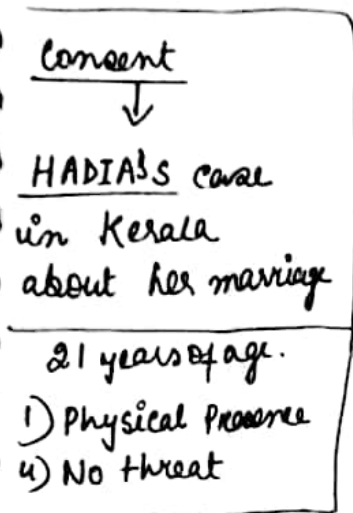 Consent
↓
HADIA's case
in Kerala
about her marriage
21 years of age.
1) Physical Presence
4) No threat